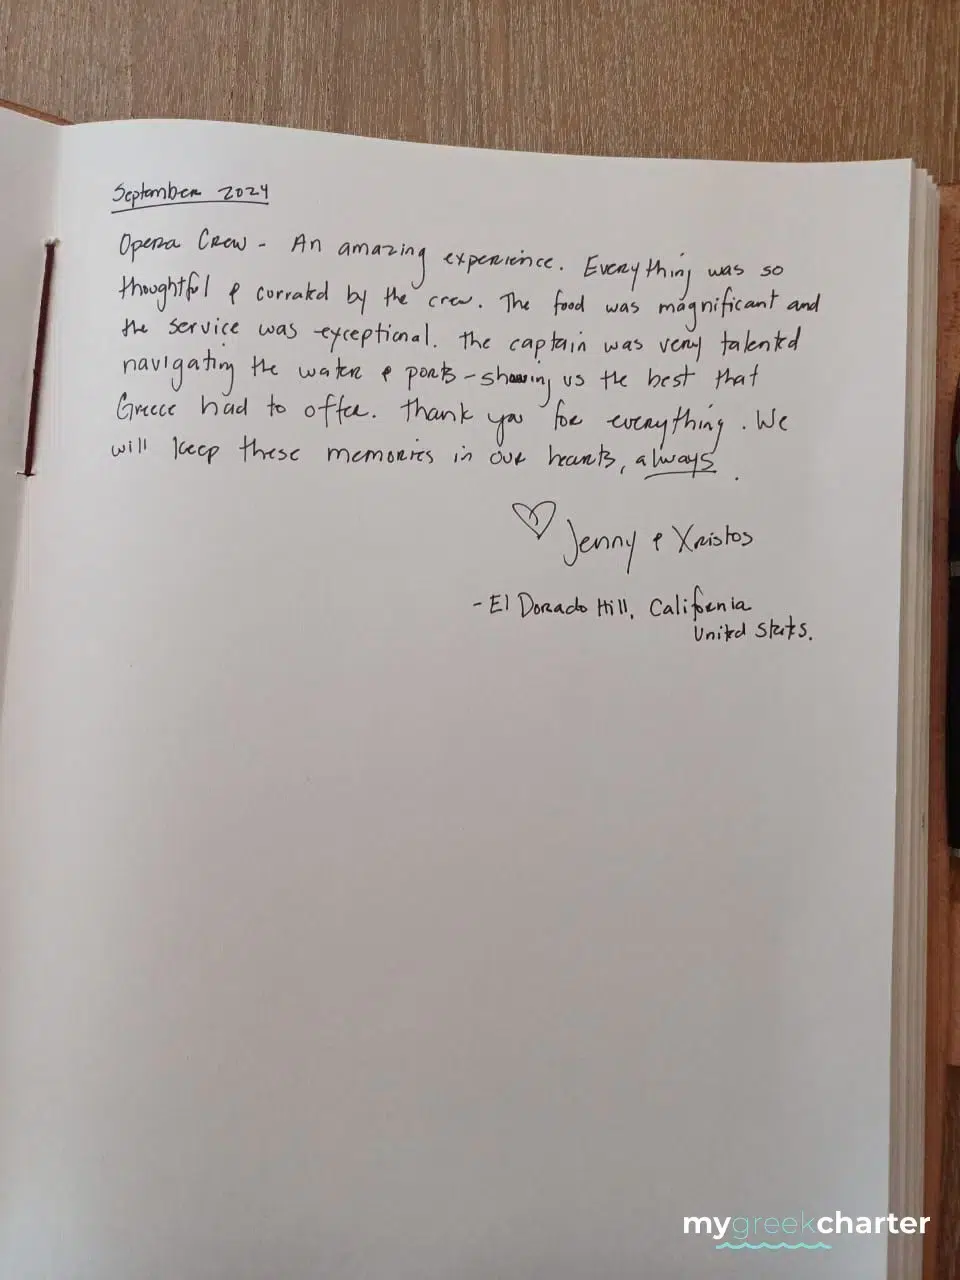 September 2024
Opera Crew - An amazing experience. Everything was so
thoughtful & currated by the crew. The food was magnificant and
the service was exceptional. The captain was very talented
navigating the water & ports - showing us the best that
Greece had to offer. Thank you for everything. We
will keep these memories in our hearts, always.
♡ Jenny & Xristos
- El Dorado Hill, California
United States.
mygreekcharter